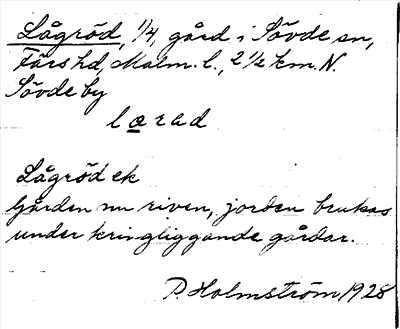 Lågröd, 1/4, gård i Sövde sn,
Färs hd, Malm. l., 2 1/2 km. N.
Sövde by
lærad
Lågröd ek
Gården nu riven, jorden brukas
under kringliggande gårdar.
P. Holmström 1928